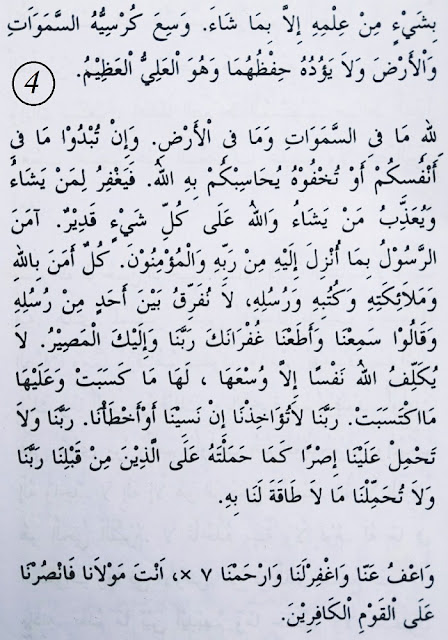 بِشَيْءٍ مِنْ عِلْمِهِ إِلاَّ بِمَا شَاءَ. وَسِعَ كُرْسِيُّهُ السَّمَوَاتِ
وَالْأَرْضَ وَلاَ يَؤُدُهُ حِفْظُهُمَا وَهُوَ الْعَلِيُّ الْعَظِيْمُ.
4
لِلهِ مَا فِي السَّمَوَاتِ وَمَا فِي الْأَرْضِ. وَإِنْ تُبْدُوْا مَا فِي
أَنْفُسِكُمْ أَوْ تُخْفُوْهُ يُحَاسِبْكُمْ بِهِ اللهُ. فَيَغْفِرُ لِمَنْ يَشَاءُ
وَيُعَذِّبُ مَنْ يَشَاءُ وَاللهُ عَلَى كُلِّ شَيْءٍ قَدِيْرٌ. آمَنَ
الرَّسُوْلُ بِمَا أُنْزِلَ إِلَيْهِ مِنْ رَبِّهِ وَالْمُؤْمِنُوْنَ. كُلٌّ أَمَنَ بِاللهِ
وَمَلاَئِكَتِهِ وَكُتُبِهِ وَرُسُلِهِ، لاَ نُفَرِّقُ بَيْنَ أَحَدٍ مِنْ رُسُلِهِ
وَقَالُوْا سَمِعْنَا وَأَطَعْنَا غُفْرَانَكَ رَبَّنَا وَإِلَيْكَ الْمَصِيْرُ. لاَ
يُكَلِّفُ اللهُ نَفْسًا إِلاَّ وُسْعَهَا ، لَهَا مَا كَسَبَتْ وَعَلَيْهَا
مَااكْتَسَبَتْ. رَبَّنَا لاَتُؤَاخِذْنَا إِنْ نَسِيْنَا أَوْأَخْطَأْنَا. رَبَّنَا وَلاَ
تَحْمِلْ عَلَيْنَا إِصْرًا كَمَا حَمَلْتَهُ عَلَى الَّذِيْنَ مِنْ قَبْلِنَا رَبَّنَا
وَلاَ تُحَمِّلْنَا مَا لاَ طَاقَةَ لَنَا بِهِ.
وَاعْفُ عَنَّا وَاغْفِرْلَنَا وَارْحَمْنَا ٧ ×، اَنْتَ مَوْلاَنَا فَانْصُرْنَا
عَلَى الْقَوْمِ الْكَافِرِيْنَ.